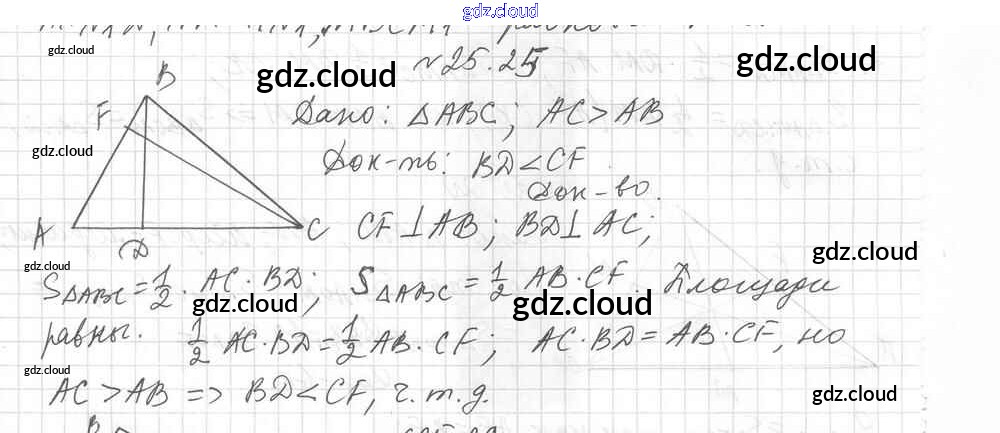 gdz.cloud
№25.25
gdz.cloud gdz.cloud gdz.cloud
B
F
Дано: △ABC; AC > AB
gdz.cloud
Док-ть: BD < CF
Док-во.
A D C
CF ⊥ AB; BD ⊥ AC;
gdz.cloud
gdz.cloud
S△ABC = 1/2 · AC · BD; S△ABC = 1/2 AB · CF. Площади
gdz.cloud gdz.cloud
равны. 1/2 AC · BD = 1/2 AB · CF; AC · BD = AB · CF, но
gdz.cloud
AC > AB => BD < CF, ч.т.д.
gdz.cloud
B